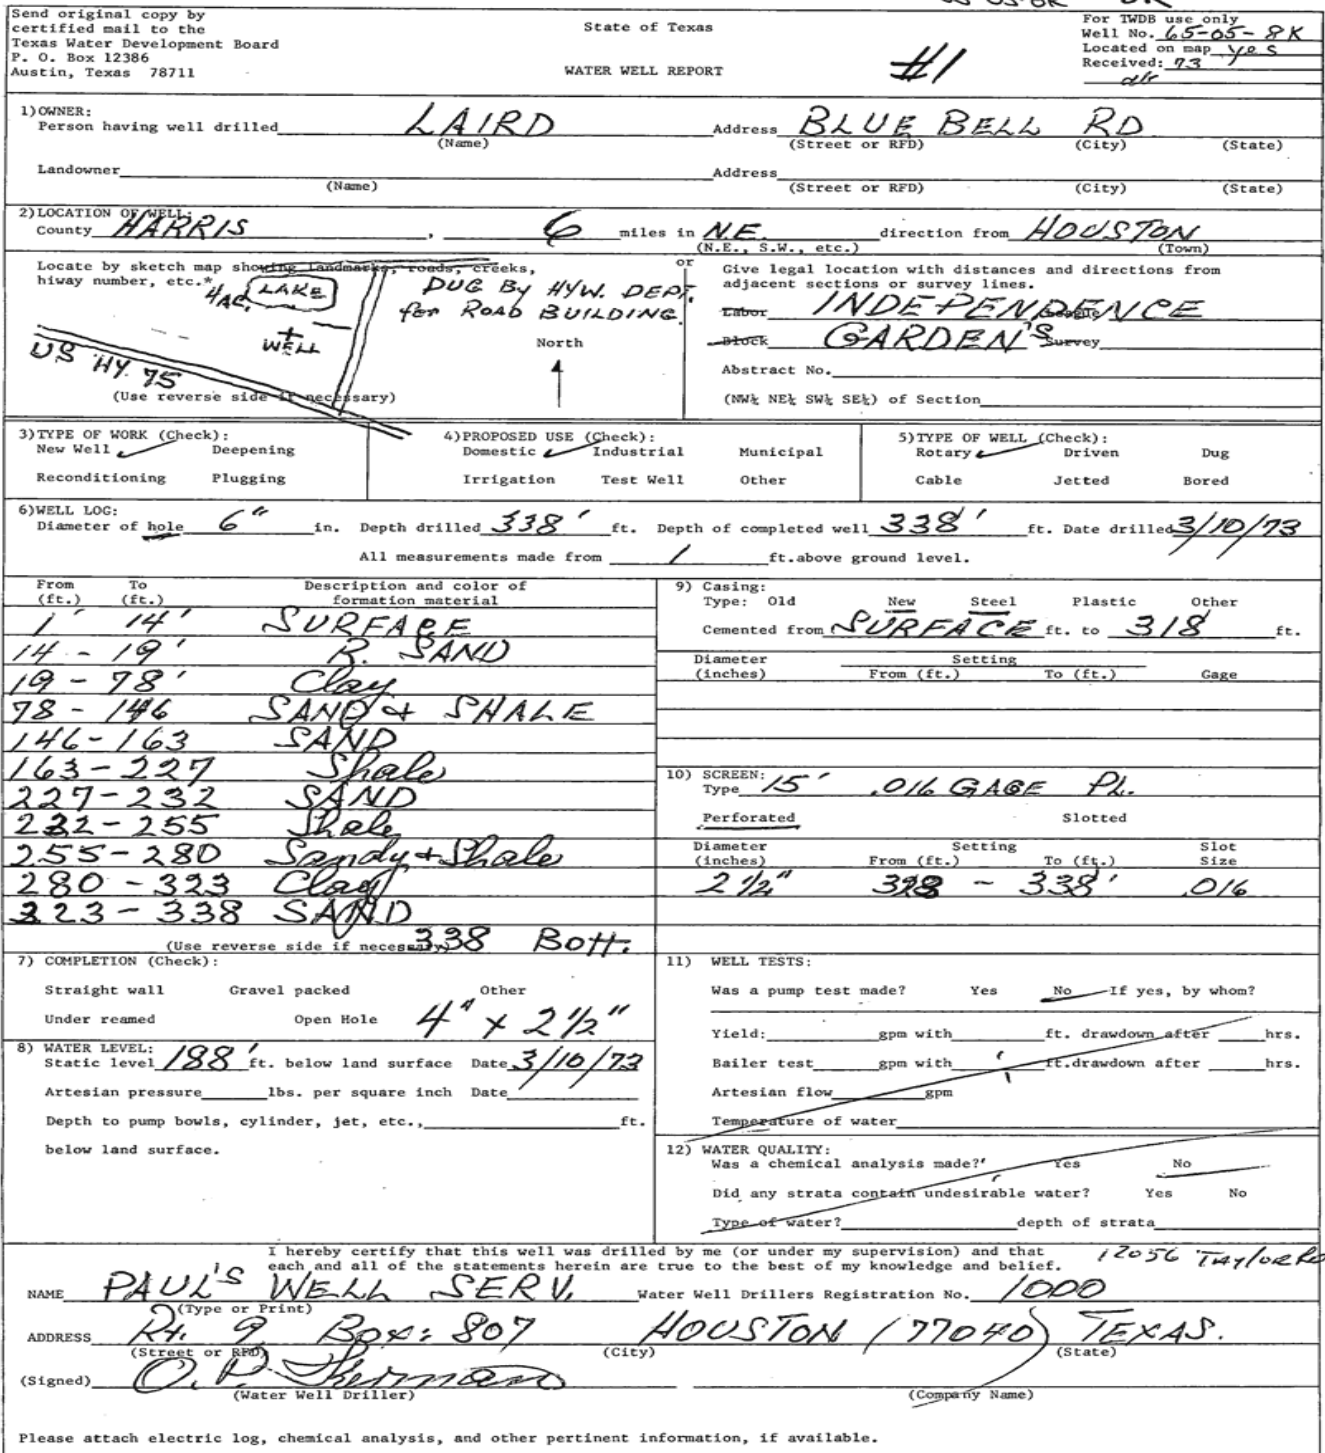 Send original copy by
certified mail to the
Texas Water Development Board
P. O. Box 12386
Austin, Texas 78711
State of Texas
WATER WELL REPORT
#1
For TWDB use only
Well No. 65-05-8K
Located on map yes
Received: 73
1)OWNER:
Person having well drilled LAIRD Address BLUE BELL RD
(Name) (Street or RFD) (City) (State)
Landowner Address
(Name) (Street or RFD) (City) (State)
2)LOCATION OF WELL:
County HARRIS , 6 miles in N.E. direction from HOUSTON
(N.E., S.W., etc.) (Town)
Locate by sketch map showing landmarks, roads, creeks,
hiway number, etc.*
4AC. LAKE
DUG By HYW. DEPT.
for ROAD BUILDING
WELL
US HY. 75
North
(Use reverse side if necessary)
or
Give legal location with distances and directions from
adjacent sections or survey lines.
Labor INDEPENDENCE League
Block GARDEN'S Survey
Abstract No.
(NW¼ NE¼ SW¼ SE¼) of Section
3)TYPE OF WORK (Check):
New Well ✓ Deepening
Reconditioning Plugging
4)PROPOSED USE (Check):
Domestic ✓ Industrial Municipal
Irrigation Test Well Other
5)TYPE OF WELL (Check):
Rotary ✓ Driven Dug
Cable Jetted Bored
6)WELL LOG:
Diameter of hole 6" in. Depth drilled 338' ft. Depth of completed well 338' ft. Date drilled 3/10/73
All measurements made from 1 ft.above ground level.
From To Description and color of
(ft.) (ft.) formation material
1' 14' SURFACE
14 - 19' R. SAND
19 - 78' Clay
78 - 146 SAND + SHALE
146-163 SAND
163-227 Shale
227-232 SAND
232-255 Shale
255-280 Sandy + Shale
280 - 323 Clay
323-338 SAND
(Use reverse side if necessary) 338 Bott.
7) COMPLETION (Check):
Straight wall Gravel packed Other
Under reamed Open Hole 4" x 2½"
8) WATER LEVEL:
Static level 188' ft. below land surface Date 3/10/73
Artesian pressure lbs. per square inch Date
Depth to pump bowls, cylinder, jet, etc., ft.
below land surface.
9) Casing:
Type: Old New Steel Plastic Other
Cemented from SURFACE ft. to 318 ft.
Diameter Setting
(inches) From (ft.) To (ft.) Gage
10) SCREEN:
Type 15' .016 GAGE PL.
Perforated Slotted
Diameter Setting Slot
(inches) From (ft.) To (ft.) Size
2½" 328 - 338' .016
11) WELL TESTS:
Was a pump test made? Yes No If yes, by whom?
Yield: gpm with ft. drawdown after hrs.
Bailer test gpm with ft.drawdown after hrs.
Artesian flow gpm
Temperature of water
12) WATER QUALITY:
Was a chemical analysis made? Yes No
Did any strata contain undesirable water? Yes No
Type of water? depth of strata
I hereby certify that this well was drilled by me (or under my supervision) and that
each and all of the statements herein are true to the best of my knowledge and belief.
12056 TAYLOR Rd
NAME PAUL'S WELL SERV. Water Well Drillers Registration No. 1000
(Type or Print)
ADDRESS Rt. 9 Box: 807 HOUSTON (77040) TEXAS.
(Street or RFD) (City) (State)
(Signed) O.P.
(Water Well Driller) (Company Name)
Please attach electric log, chemical analysis, and other pertinent information, if available.